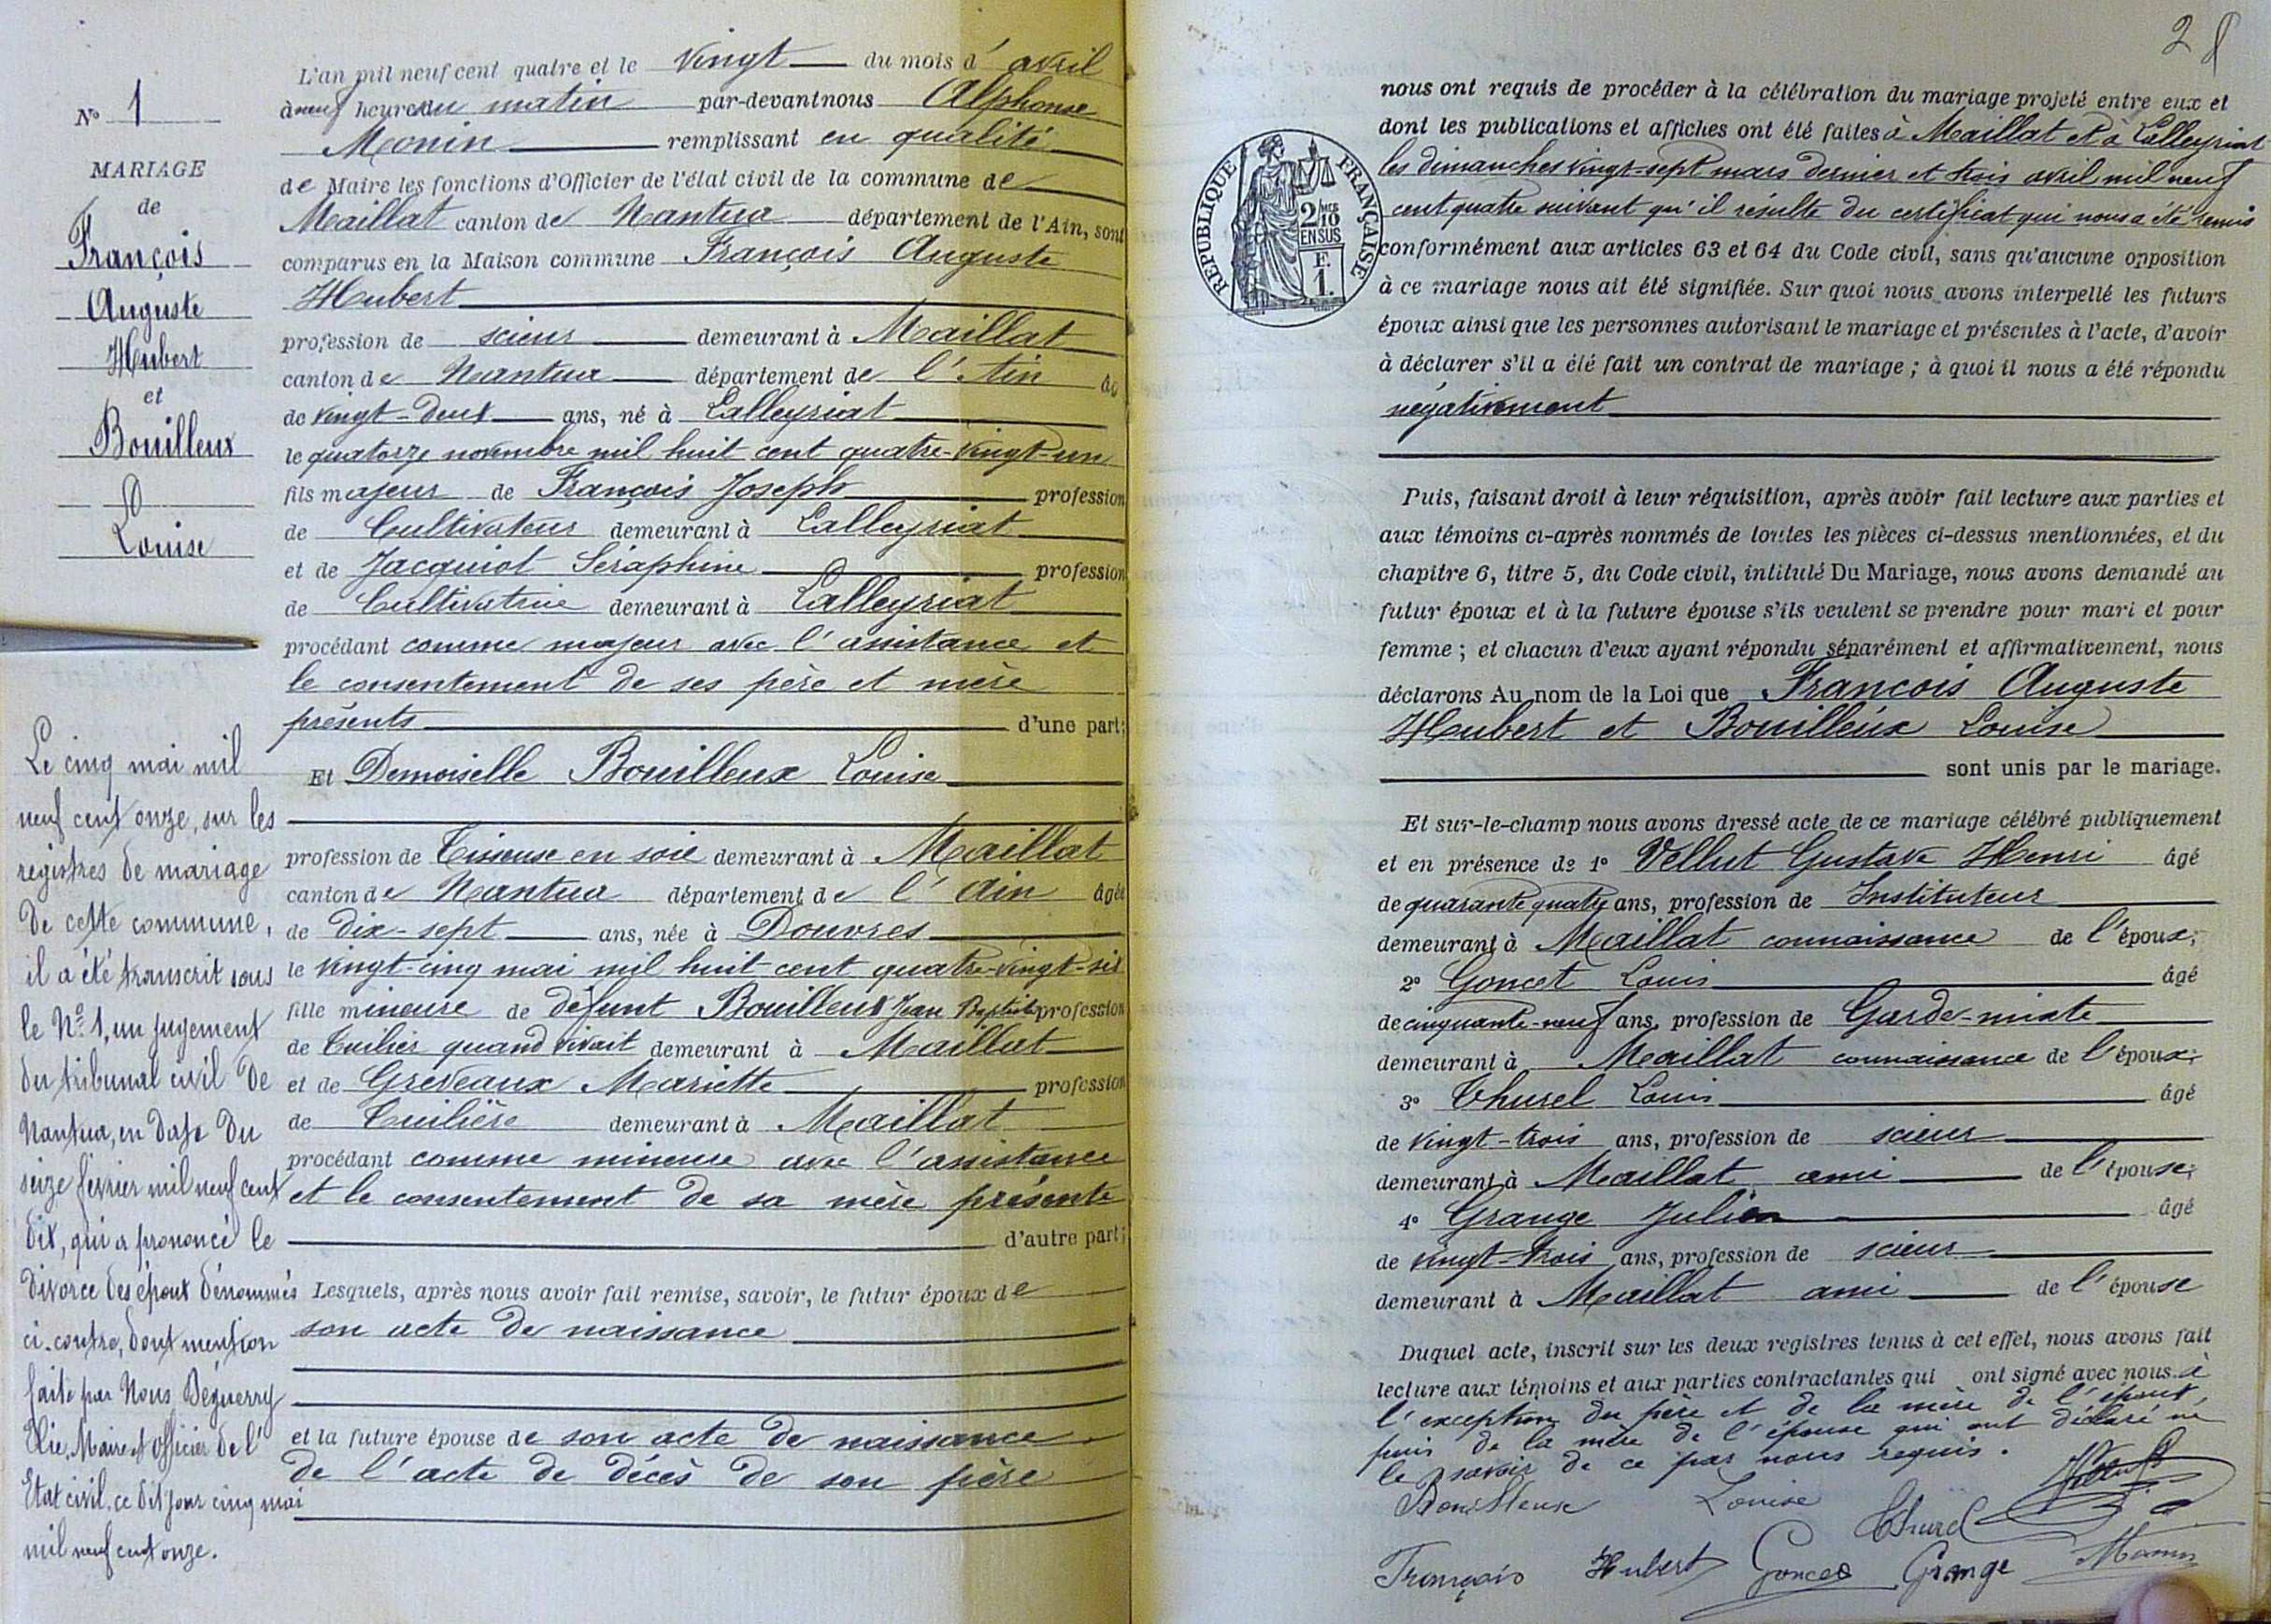 N° 1
MARIAGE
de
François
Auguste
Hubert
et
Bouilleux
Louise
Le cinq mai mil
neuf cent onze, sur les
registres de mariage
de cette commune,
il a été transcrit sous
le N° 1, un jugement
du tribunal civil de
Nantua, en date du
seize février mil neuf cent
dix, qui a prononcé le
divorce des époux dénommés
ci-contre, dont mention
faite par Nous Béguerry
Elie, Maire et officier de l'
Etat civil, ce dit jour cinq mai
mil neuf cent onze.
L'an mil neuf cent quatre et le vingt du mois d'avril
à neuf heures du matin par-devant nous Alphonse
Monin remplissant en qualité
de Maire les fonctions d'Officier de l'état civil de la commune de
Maillat canton de Nantua département de l'Ain, sont
comparus en la Maison commune François Auguste
Hubert
profession de scieur demeurant à Maillat
canton de Nantua département de l'Ain âg
de vingt-deux ans, né à Lalleyriat
le quatorze novembre mil huit cent quatre-vingt-un
fils majeur de François Joseph profession
de Cultivateur demeurant à Lalleyriat
et de Jacquiot Séraphine profession
de Cultivatrice demeurant à Lalleyriat
procédant comme majeur avec l'assistance et
le consentement de ses père et mère
présents d'une part;
Et Demoiselle Bouilleux Louise
profession de Tisseuse en soie demeurant à Maillat
canton de Nantua département de l'Ain âgée
de dix-sept ans, née à Douvres
le vingt-cinq mai mil huit cent quatre-vingt-six
fille mineure de défunt Bouilleux Jean Baptiste profession
de Tuilier quand vivait demeurant à Maillat
et de Greveaux Mariette profession
de Tuilière demeurant à Maillat
procédant comme mineure avec l'assistance
et le consentement de sa mère présente
d'autre part;
Lesquels, après nous avoir fait remise, savoir, le futur époux de
son acte de naissance
et la future épouse de son acte de naissance
de l'acte de décès de son père
2
RÉPUBLIQUE FRANÇAISE
2/10
EN SUS
F.
1.
nous ont requis de procéder à la célébration du mariage projeté entre eux et
dont les publications et affiches ont été faites à Maillat et à Lalleyriat
les dimanches vingt-sept mars dernier et trois avril mil neuf
cent quatre suivant qu'il résulte du certificat qui nous a été remis
conformément aux articles 63 et 64 du Code civil, sans qu'aucune opposition
à ce mariage nous ait été signifiée. Sur quoi nous avons interpellé les futurs
époux ainsi que les personnes autorisant le mariage et présentes à l'acte, d'avoir
à déclarer s'il a été fait un contrat de mariage ; à quoi il nous a été répondu
négativement
Puis, faisant droit à leur réquisition, après avoir fait lecture aux parties et
aux témoins ci-après nommés de toutes les pièces ci-dessus mentionnées, et du
chapitre 6, titre 5, du Code civil, intitulé Du Mariage, nous avons demandé au
futur époux et à la future épouse s'ils veulent se prendre pour mari et pour
femme ; et chacun d'eux ayant répondu séparément et affirmativement, nous
déclarons Au nom de la Loi que François Auguste
Hubert et Bouilleux Louise
sont unis par le mariage.
Et sur-le-champ nous avons dressé acte de ce mariage célébré publiquement
et en présence de 1° Vellut Gustave Henri âgé
de quarante quatre ans, profession de Instituteur
demeurant à Maillat connaissance de l'époux;
2° Goncet Louis âgé
de cinquante-neuf ans, profession de Garde-mixte
demeurant à Maillat connaissance de l'époux;
3° Thurel Louis âgé
de vingt-trois ans, profession de scieur
demeurant à Maillat ami de l'épouse;
4° Grange Julien âgé
de vingt-trois ans, profession de scieur
demeurant à Maillat ami de l'épouse
Duquel acte, inscrit sur les deux registres tenus à cet effet, nous avons fait
lecture aux témoins et aux parties contractantes qui ont signé avec nous à
l'exception du père et de la mère de l'époux,
puis de la mère de l'épouse qui ont déclaré ne
le savoir de ce par nous requis.
Bouilleux Louise Thurel
François Hubert Goncet Grange Monin